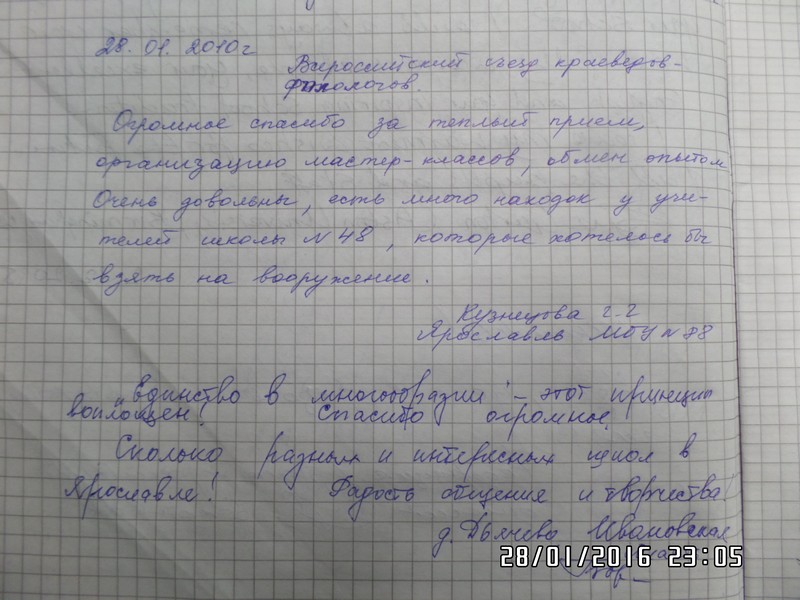 28. 01. 2010г
Всероссийский съезд краеведов-
филологов.
Огромное спасибо за теплый прием,
организацию мастер-классов, обмен опытом
Очень довольны, есть много находок у учи-
телей школы №48, которые хотелось бы
взять на вооружение.
Кузнецова
Ярославль МОУ №88
„Единство в многообразии" - этот принцип
воплощен! Спасибо огромное!
Сколько разных и интересных школ в
Ярославле! Радость общения и творчества!
Ивановская
28/01/2016 23:05